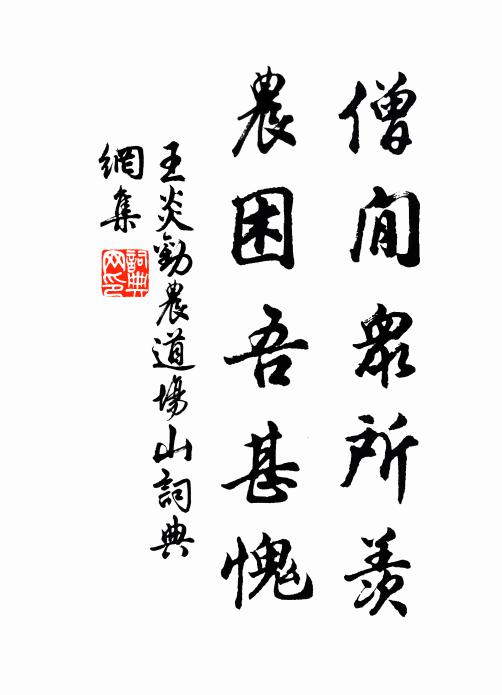 僧閒眾所羨
農困吾甚愧
王炎勸農道場山詞典
網集
詞典
网印